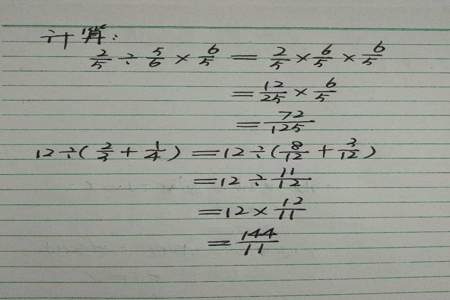 计算:
2/5 ÷ 5/6 × 6/5 = 2/5 × 6/5 × 6/5
= 12/25 × 6/5
= 72/125
12÷(2/3 + 1/4) = 12÷(8/12 + 3/12)
= 12 ÷ 11/12
= 12 × 12/11
= 144/11